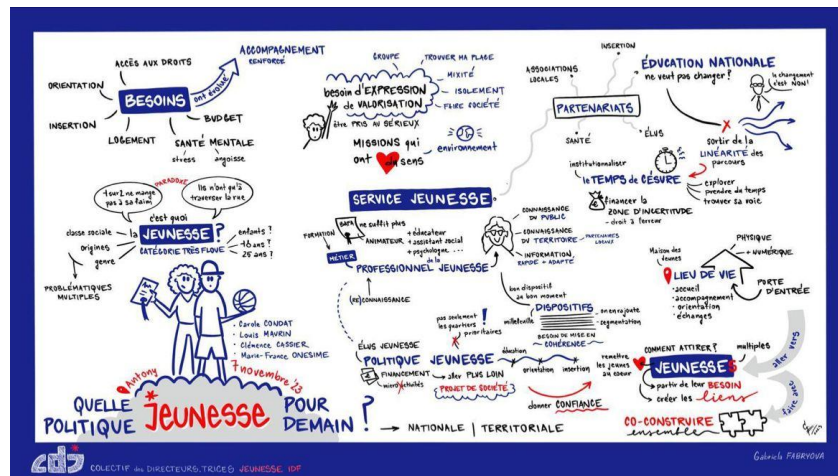 ACCÈS AUX DROITS
ORIENTATION
BESOINS
ont évolué
ACCOMPAGNEMENT
RENFORCÉ
INSERTION
LOGEMENT
BUDGET
SANTÉ MENTALE
stress
angoisse
1 sur 2 ne mange
pas à sa faim
PARADOXE
Ils n'ont qu'à
traverser la rue
c'est quoi
la JEUNESSE ?
CATÉGORIE TRÈS FLOUE
classe sociale
origines
genre
enfants ?
16 ans ?
25 ans ?
PROBLÉMATIQUES
MULTIPLES
• Carole CONDAT
• Louis MAVRIN
• Clémence CASSIER
• Marie-France ONESIME
Antony
7 novembre '23
QUELLE
POLITIQUE
jEUNESSE
POUR
DEMAIN ?
NATIONALE | TERRITORIALE
GROUPE
TROUVER MA PLACE
MIXITÉ
ISOLEMENT
FAIRE SOCIÉTÉ
besoin d'EXPRESSION
de VALORISATION
être PRIS AU SÉRIEUX
MISSIONS qui
ont du sens
environnement
SERVICE JEUNESSE
FORMATION
BAFA
ne suffit plus
ANIMATEUR
+ éducateur
+ assistant social
+ psychologue ...
MÉTIER
de la
PROFESSIONNEL JEUNESSE
(RE)CONNAISSANCE
CONNAISSANCE
DU PUBLIC
CONNAISSANCE
DU TERRITOIRE
PARTENAIRES
LOCAUX
INFORMATION
RAPIDE + ADAPTÉ
bon dispositif
au bon moment
DISPOSITIFS
millefeuille
on en rajoute
segmentation
BESOIN DE MISE EN
COHÉRENCE
ÉLUS JEUNESSE
pas seulement
les quartiers
prioritaires
!
POLITIQUE JEUNESSE
FINANCEMENT
micro activités
aller PLUS LOIN
PROJET DE SOCIÉTÉ
éducation
orientation
insertion
remettre
les jeunes
au coeur
donner CONFIANCE
INSERTION
ASSOCIATIONS
LOCALES
PARTENARIATS
SANTÉ
ÉLUS
ÉDUCATION NATIONALE
ne veut pas changer ?
le changement
c'est NON!
sortir de la
LINÉARITÉ des
parcours
institutionnaliser
le TEMPS de CÉSURE
explorer
prendre du temps
trouver sa voie
€
financer la
ZONE D'INCERTITUDE
- droit à l'erreur
Maison des
Jeunes
PHYSIQUE
+ NUMÉRIQUE
LIEU DE VIE
• accueil
• accompagnement
• orientation
• échanges
PORTE
D'ENTRÉE
COMMENT ATTIRER ?
multiples
JEUNESSES
partir de leur BESOIN
créer les liens
aller vers
faire avec
CO-CONSTRUIRE
ensemble
cdj
COLLECTIF des DIRECTEURS.TRICES JEUNESSE IDF
Gabriela FABRYOVA